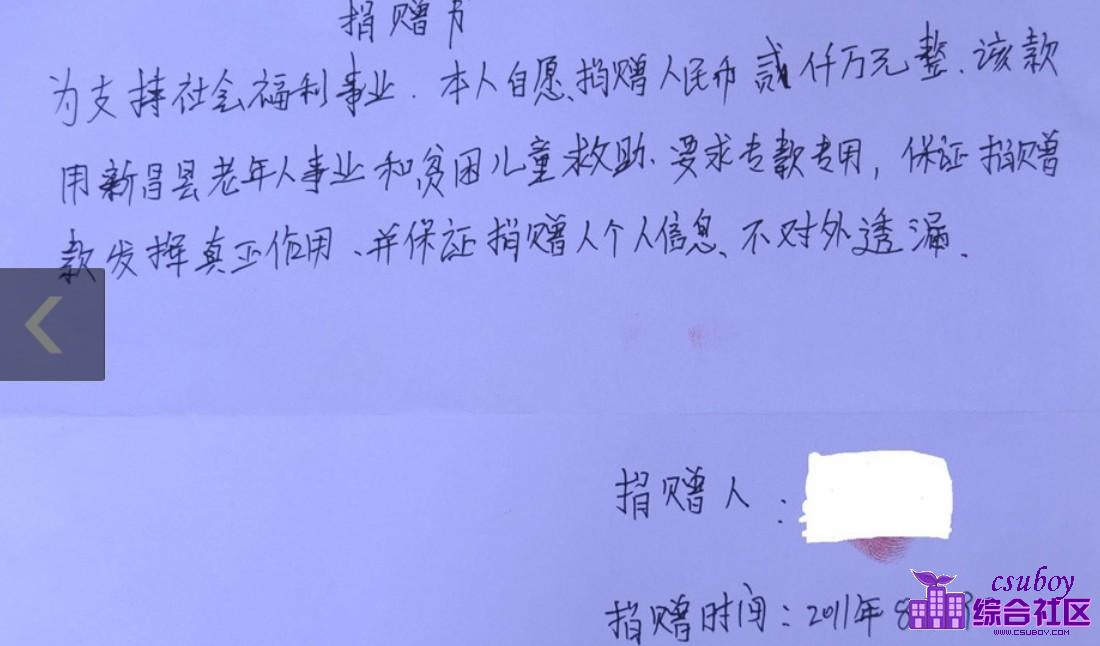 捐赠书
为支持社会福利事业.本人自愿、捐赠人民币贰仟万元整、该款
用新昌县老年人事业和贫困儿童救助、要求专款专用,保证捐赠
款发挥真正作用、并保证捐赠人个人信息、不对外透漏.
捐赠人:
捐赠时间:2011年8
csuboy
综合社区
WWW.CSUBOY.COM